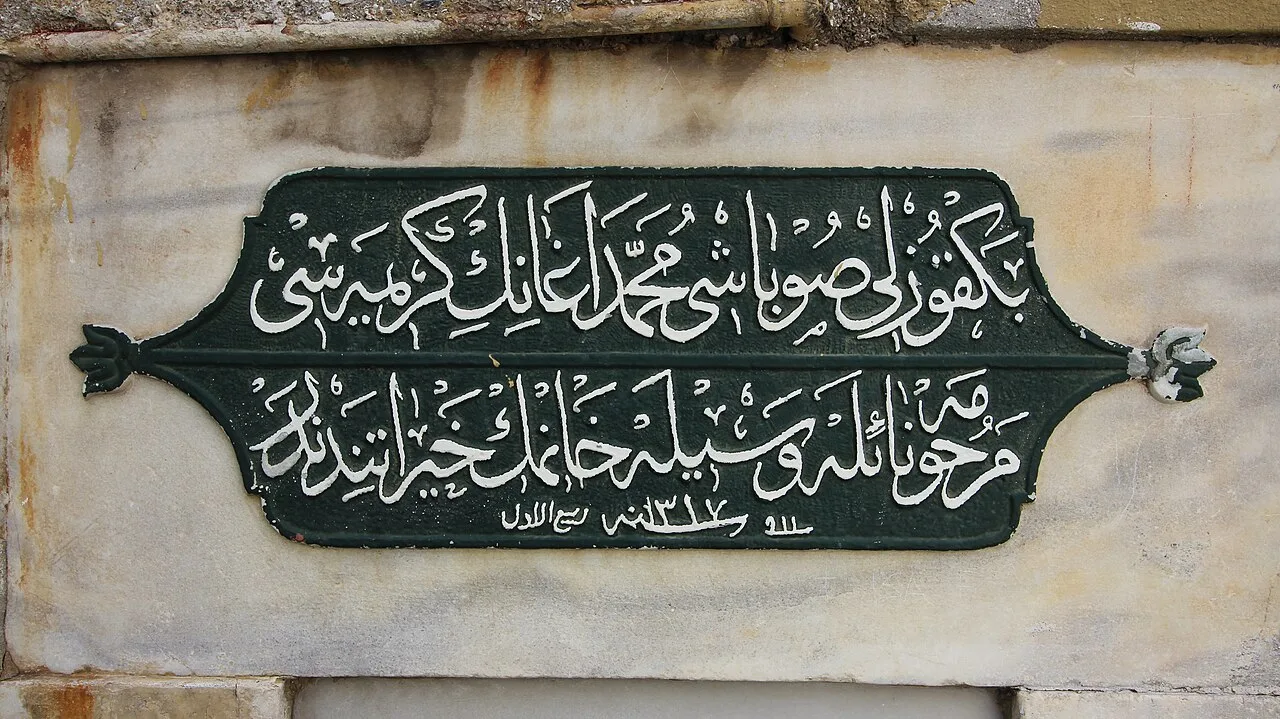 بكقوزلى صوباشى محمد اغانك كريمه سى
مرحومه نائله وسيله خانمك خيراتندندر
سنه ١٣١٧ ربيع الاول